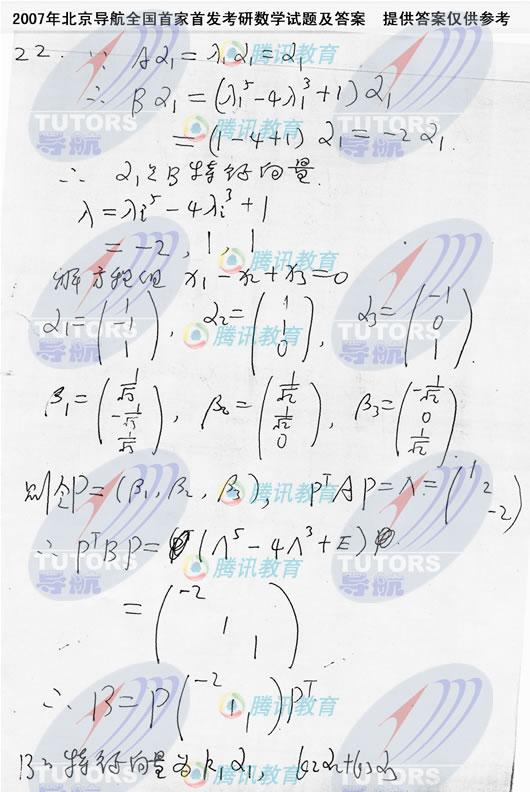 2007年北京导航全国首家首发考研数学试题及答案 提供答案仅供参考
22. ∵ Aα₁ = λ₁α₁ = α₁
∴ Bα₁ = (λ₁⁵ - 4λ₁³ + 1) α₁
= (1 - 4 + 1) α₁ = -2α₁.
∴ α₁是B特征向量.
λ = λi⁵ - 4λi³ + 1
= -2, 1, 1
解方程组 x₁ - x₂ + x₃ = 0
α₁ = (1 -1 1), α₂ = (1 1 0), α₃ = (-1 0 1).
β₁ = (1/√3 -1/√3 1/√3), β₂ = (1/√2 1/√2 0), β₃ = (-1/√2 0 1/√2).
则令P = (β₁, β₂, β₃), PᵀAP = Λ = (1 2 -2)
∴ PᵀBP = (Λ⁵ - 4Λ³ + E)
= (-2 1 1)
∴ B = P(-2 1 1)Pᵀ
B的特征向量为 k₁α₁, k₂α₂+k₃α₃
TUTORS
导航
腾讯教育